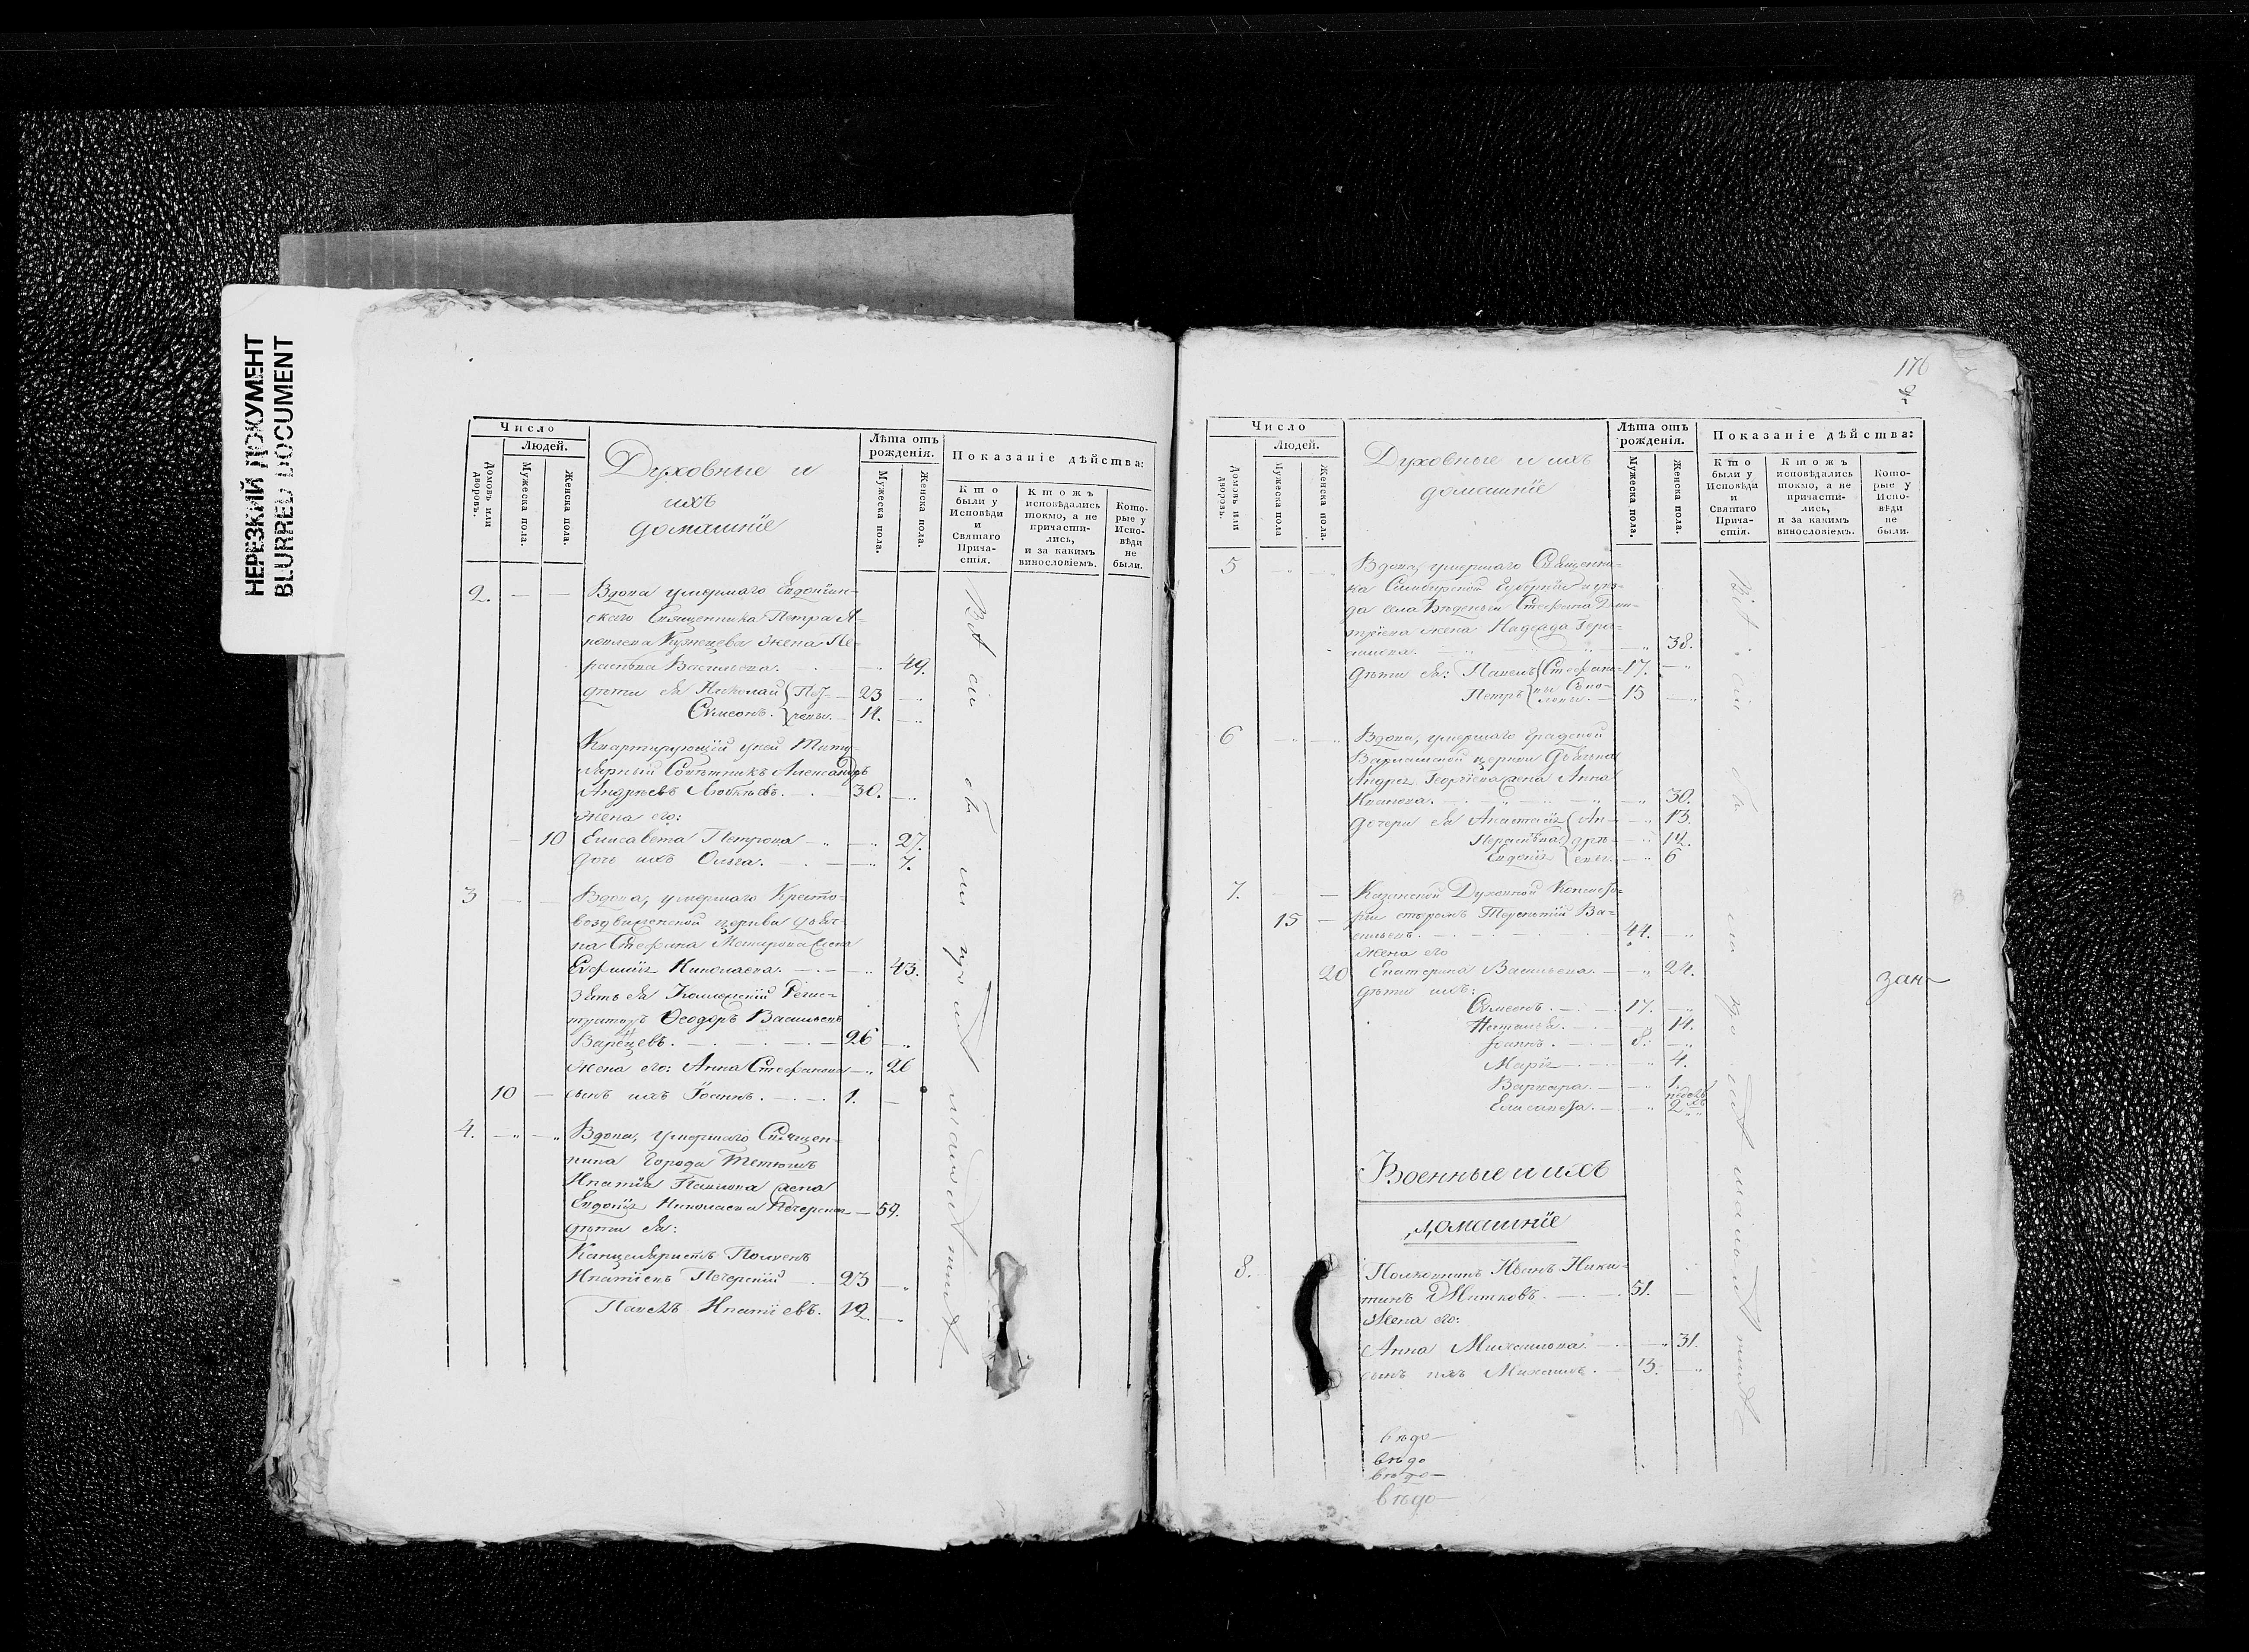 НЕРЕЗКИЙ ДОКУМЕНТ
BLURRED DOCUMENT
Число
Людей.
Домовъ или дворовъ.
Мужеска пола.
Женска пола.
Духовные и
ихъ
домашнїе
Лѣта отъ рожденія.
Мужеска пола.
Женска пола.
Показаніе дѣйства:
Кто были у Исповѣди и Святаго Причастія.
Ктожъ исповѣдались токмо, а не причастились, и за какимъ винословіемъ.
Которые у Исповѣди не были.
2. Вдова умершаго
скаго Священника Петра
жена Па-
раскева Васильева. 49.
дѣти ея Николай Пет- 23
Сѵмеонъ. ровы. 14.
Квартирующій у ней Титу-
лярный Совѣтникъ Александръ
Андреевъ 30.
жена его:
10 Елисавета Петрова 27.
дочь ихъ Ольга. 7.
3 Вдова, умершаго Кресто-
воздвиженской церкви дьяч-
ка Стефана жена
Евфимія Николаева. 43.
зять ея Коллежскій Регис-
траторъ Ѳеодоръ Васильевъ
26
жена его: Анна Стефанова 26
10 сынъ ихъ Іоаннъ. 1.
4. Вдова, умершаго Священ-
ника города Тетюшъ
Ипатія Павлова жена
Евдокія Николаева Печерская 59.
дѣти ея:
Канцеляристъ
Ипатіевъ Печерскій 23
Павелъ Ипатіевъ. 19.
Всѣ сіи были
176
Число
Людей.
Домовъ или дворовъ.
Мужеска пола
Женска пола.
Духовные и ихъ
домашнїе
Лѣта отъ рожденія.
Мужеска пола.
Женска пола.
Показаніе дѣйства:
Кто были у Исповѣди и Святаго Причастія.
Ктожъ исповѣдались токмо, а не причастились, и за какимъ винословіемъ.
Которые у Исповѣди не были.
5 Вдова, умершаго Священни-
ка Симбирской Губерніи и уѣз-
да села Стефана Дим-
тріева жена Надежда Гера-
симова. 38.
дѣти ея: Павелъ Стефано- 17.
Петръ вы 15
6 Вдова, умершаго градской
Варламской церкви Дьячка
Андрея Георгіева жена Анна
Иванова. 30.
дочери ея Анастасія Ан- 13.
Параскева дре- 12.
Евдокія евы. 6
7. Казанской Духовной Консисто-
15 ріи сторожъ Терентій Ва-
сильевъ. 44.
жена его
20 Екатерина Васильева. 24.
дѣти ихъ:
Сѵмеонъ. 17.
Наталья. 14.
Іоаннъ. 8.
Марія 4.
Варвара. 1.
Елисавета. 2
зан
Военные и ихъ
домашнїе
8. Полковникъ Иванъ Ники-
тинъ 51.
жена его:
Анна Михаилова. 31.
сынъ ихъ Михаилъ. 13.
Всѣ сіи были
вѣдо
вѣдо
вѣдо
вѣдо